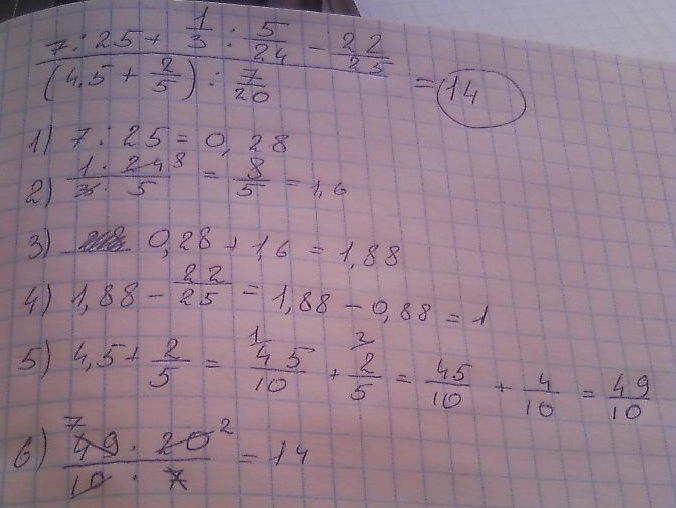 7 : 25 + 1/3 : 5/24 - 22/25
(4,5 + 2/5) : 7/20 = 14
1) 7 : 25 = 0,28
2) 1 · 24 8 / 3 · 5 = 8/5 = 1,6
3) 0,28 + 1,6 = 1,88
4) 1,88 - 22/25 = 1,88 - 0,88 = 1
5) 4,5 + 2/5 = 1/ 45/10 + 2/ 2/5 = 45/10 + 4/10 = 49/10
6) 7 49 · 20 2 / 10 · 7 = 14